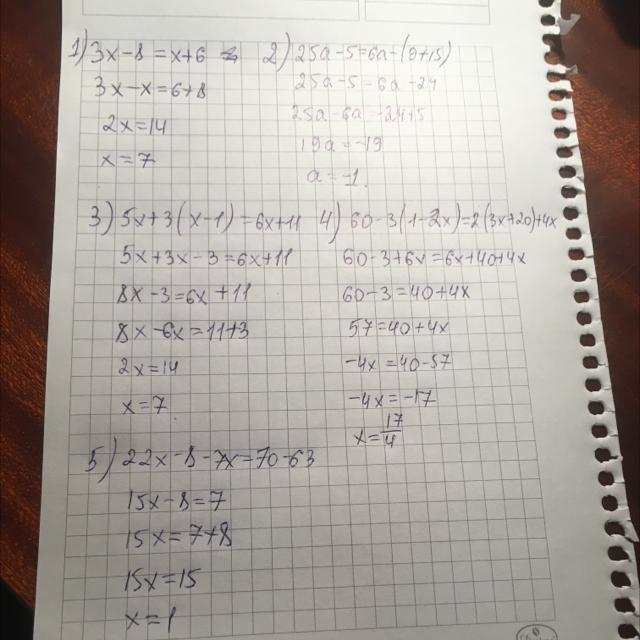 1) 3x-8=x+6
3x-x=6+8
2x=14
x=7
2) 25a-5=6a-(9+15)
25a-5=6a-24
25a-6a=-24+5
19a=-19
a=-1.
3) 5x+3(x-1)=6x+11
5x+3x-3=6x+11
8x-3=6x+11
8x-6x=11+3
2x=14
x=7
4) 60-3(1-2x)=2(3x+20)+4x
60-3+6x=6x+40+4x
60-3=40+4x
57=40+4x
-4x=40-57
-4x=-17
x=17/4
5) 22x-8-7x=70-63
15x-8=7
15x=7+8
15x=15
x=1